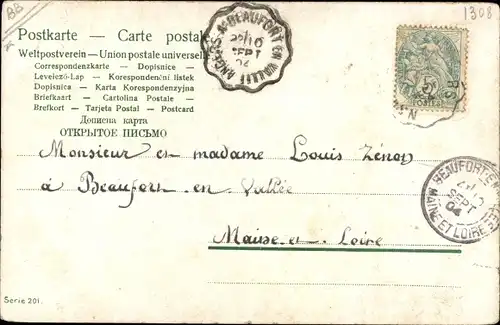 BB
1308
Postkarte — Carte postale
Weltpostverein — Union postale universelle
Correspondenzkarte — Dopisnice —
Levelező-Lap — Korespondenční listek
Dopisnica — Karta Korespondenzyjna
Briefkaart — Cartolina Postale —
Brefkort — Tarjeta Postal — Postcard
Дописна карта
ОТКРЫТОЕ ПИСЬМО
BEAUFORT-EN-VALLÉE
ANGERS
SEPT
04
5
POSTES
Monsieur et madame Louis Zénon
à Beaufort en Vallée
Maine-et-Loire
BEAUFORT-EN-
SEPT
04
MAINE-ET-LOIRE
Serie 201.